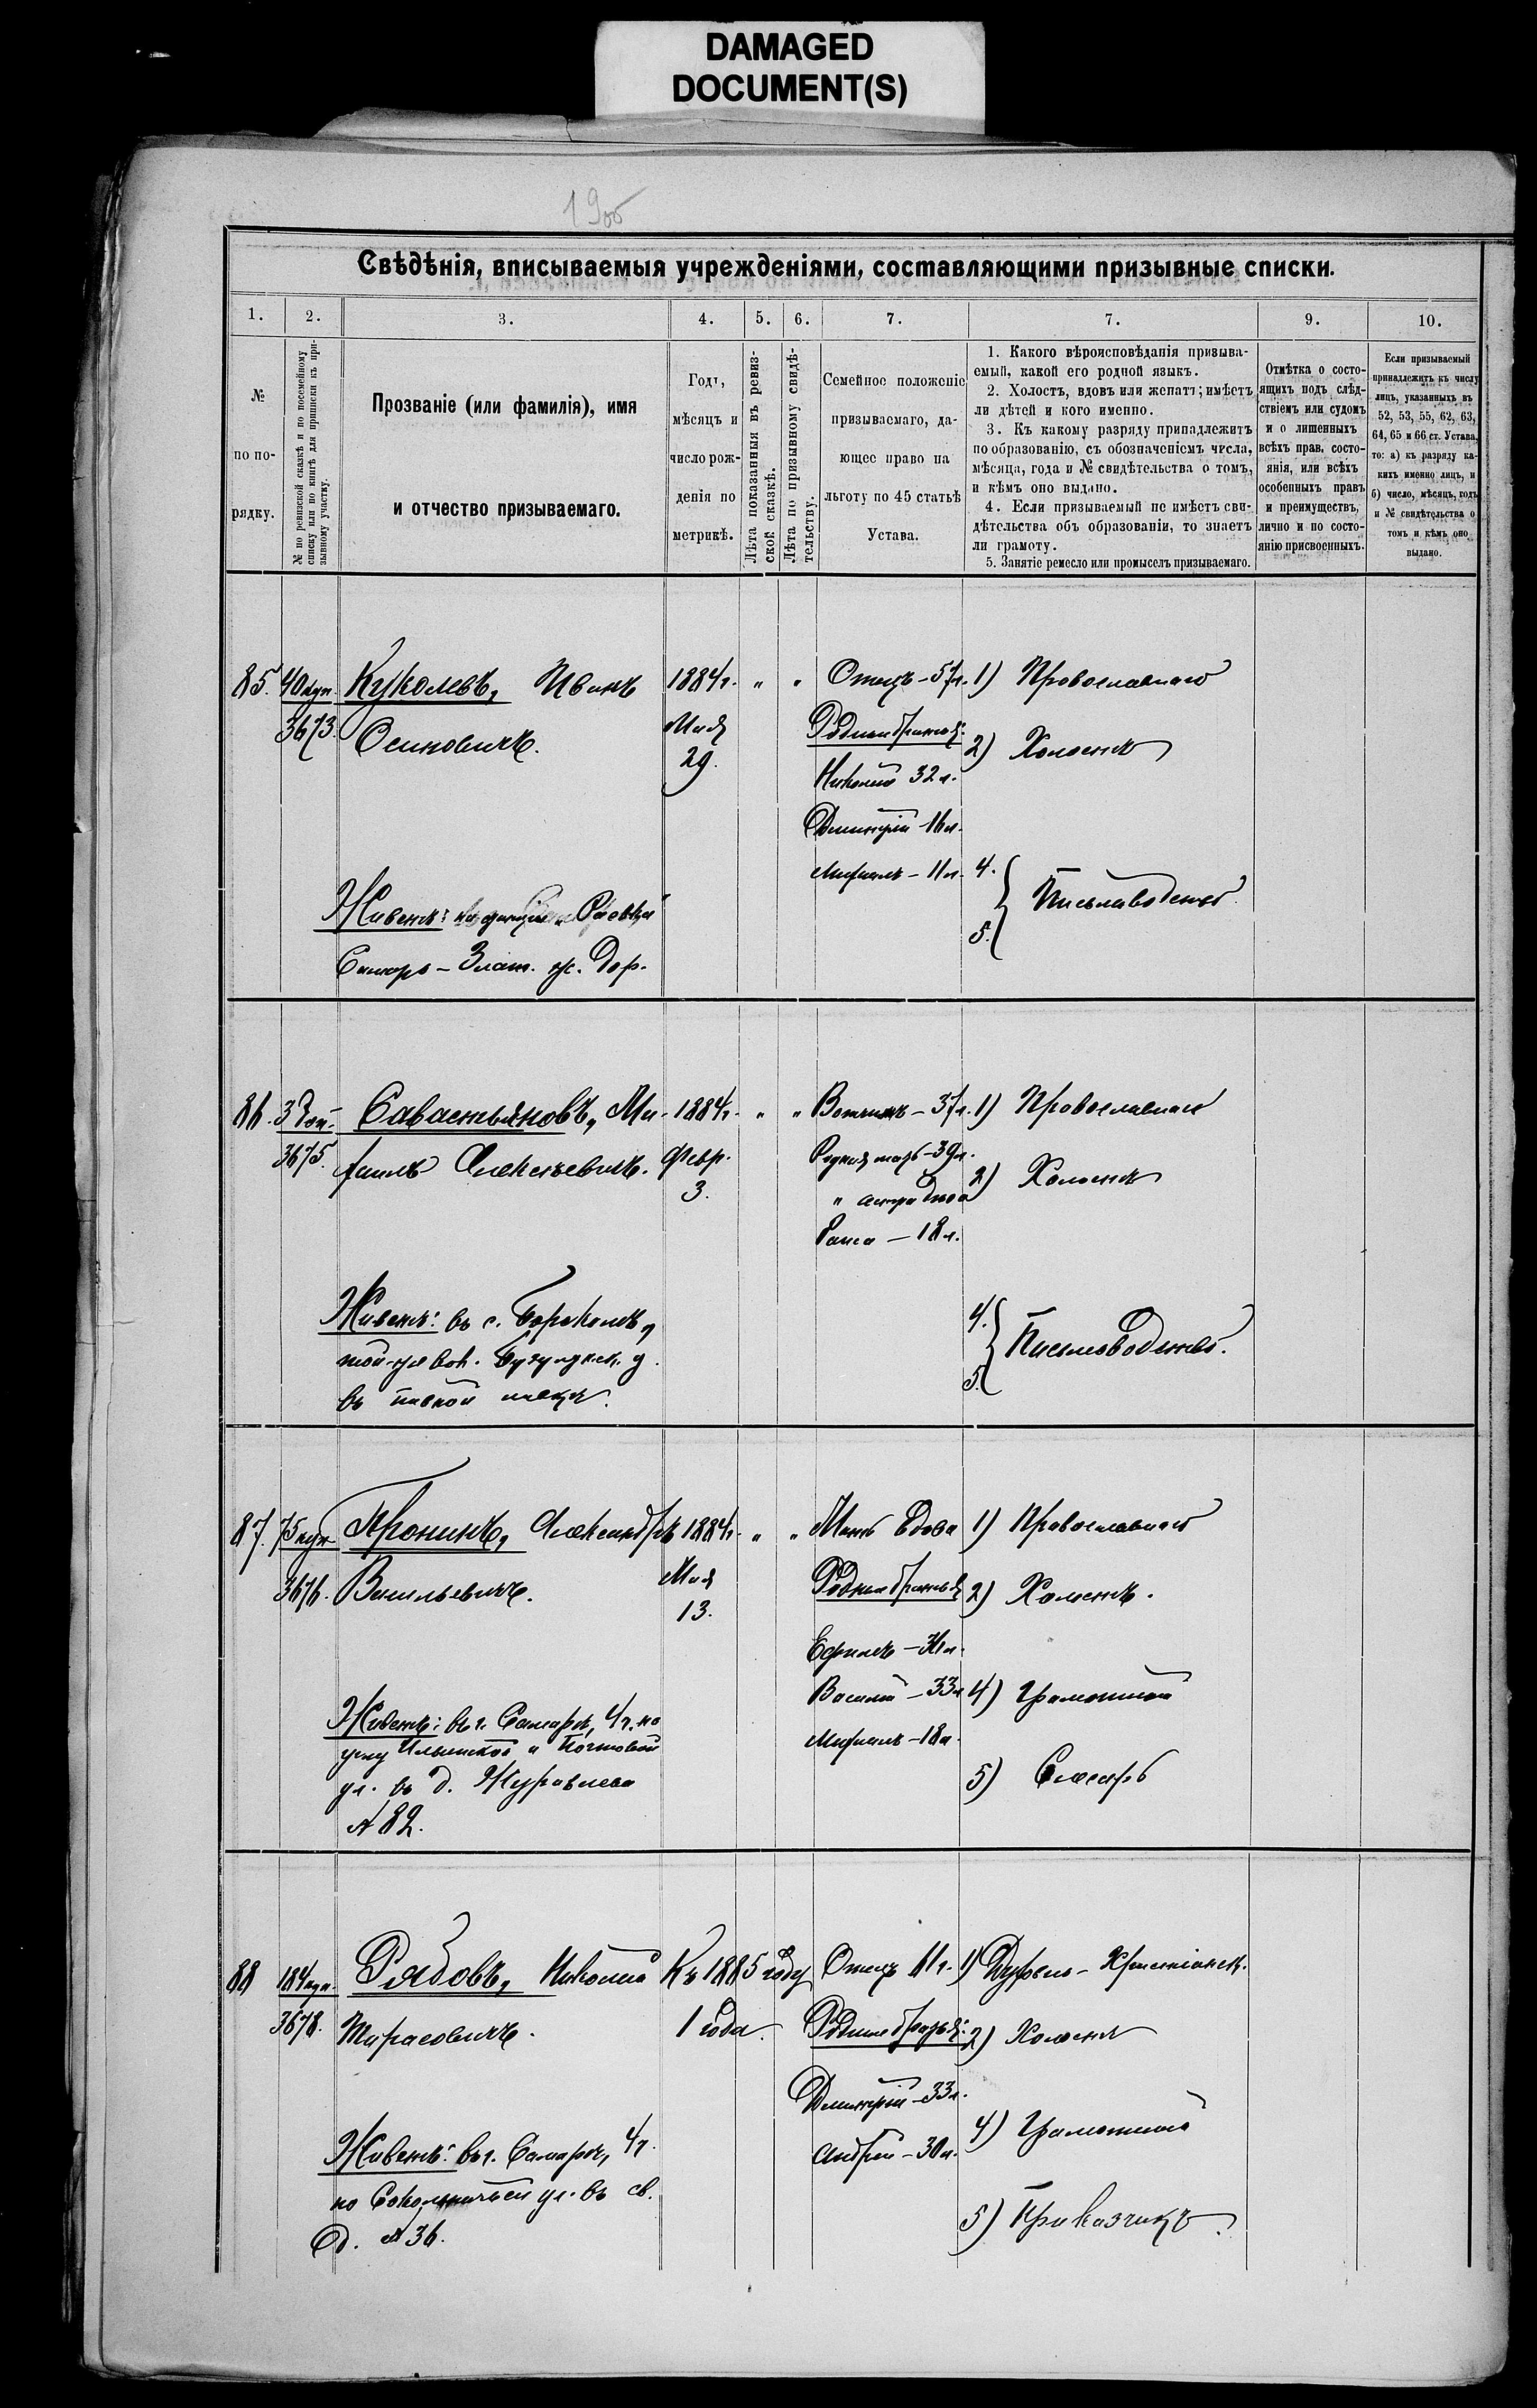 DAMAGED
DOCUMENT(S)
Свѣдѣнія, вписываемыя учрежденіями, составляющими призывные списки.
1. 2. 3. 4. 5. 6. 7. 7. 9. 10.
№
по по-
рядку.
№ по ревизской сказкѣ и по посемейному
списку или по книгѣ для приписки къ при-
зывному участку.
Прозваніе (или фамилія), имя
и отчество призываемаго.
Годъ,
мѣсяцъ и
число рож-
денія по
метрикѣ.
Лѣта показанныя въ ревиз-
ской сказкѣ.
Лѣта по призывному свидѣ-
тельству.
Семейное положеніе
призываемаго, да-
ющее право на
льготу по 45 статьѣ
Устава.
1. Какого вѣроисповѣданія призыва-
емый, какой его родной языкъ.
2. Холостъ, вдовъ или женатъ; имѣетъ
ли дѣтей и кого именно.
3. Къ какому разряду принадлежитъ
по образованію, съ обозначеніемъ числа,
мѣсяца, года и № свидѣтельства о томъ,
и кѣмъ оно выдано.
4. Если призываемый не имѣетъ сви-
дѣтельства объ образованіи, то знаетъ
ли грамоту.
5. Занятіе ремесло или промыселъ призываемаго.
Отмѣтка о состо-
ящихъ подъ слѣд-
ствіемъ или судомъ
и о лишенныхъ
всѣхъ прав. состо-
янія, или всѣхъ
особенныхъ правъ
и преимуществъ,
лично и по состо-
янію присвоенныхъ.
Если призываемый
принадлежитъ къ числу
лицъ, указанныхъ въ
52, 53, 55, 62, 63,
64, 65 и 66 ст. Устава,
то: а) къ разряду ка-
кихъ именно лицъ, и
б) число, мѣсяцъ, годъ
и № свидѣтельства о
томъ и кѣмъ оно
выдано.
85. 40 куп. Куколевъ, Иванъ 1884 г. " " Отецъ - 57 л. 1) Православнаго
3673. Осиповичъ. Мая Родные братья: 2) Холостъ
29. Николай 32 л.
Дмитрій - 16 л.
Михаилъ - 11 л. 4.
Живетъ: Письмоводство.
5.
Самаро - Злат. ж. дор.
86. 3675. Савастьяновъ, Ми- 1884 г. " " Вотчимъ - 37 л. 1) Православнаго
хаилъ Алексѣевичъ. Февр. Родная мать - 39 л.
3. " сестра 2) Холостъ
Раиса - 18 л.
Живетъ: въ с. 4.
Бузулукск. у. Письмоводство.
въ пивной лавкѣ. 5.
87. 75 куп. Пронинъ, Александръ 1884 г. " " Мать вдова 1) Православнаго
3676. Васильевичъ. Мая Родные братья 2) Холостъ.
13. Ефимъ
Василій - 33 л. 4) Грамотный
Живетъ: въ г. Самарѣ, 4 ч. на Михаилъ - 18 л.
углу Ильинской и Почтовой 5) Слесарь
ул. въ д. Журавлева
№ 82.
88 184 куп. Рябовъ, Николай Къ 1885 году Отецъ 1) Духовно - Христіанск.
3678. Тарасовичъ. 1 года. Родные братья: 2) Холостъ
Дмитрій - 33 л.
Живетъ: въ г. Самарѣ, 4 ч. Андрей - 30 л. 4) Грамотный
по Сокольничьей ул. въ св. 5) Приказчикъ
д. № 36.